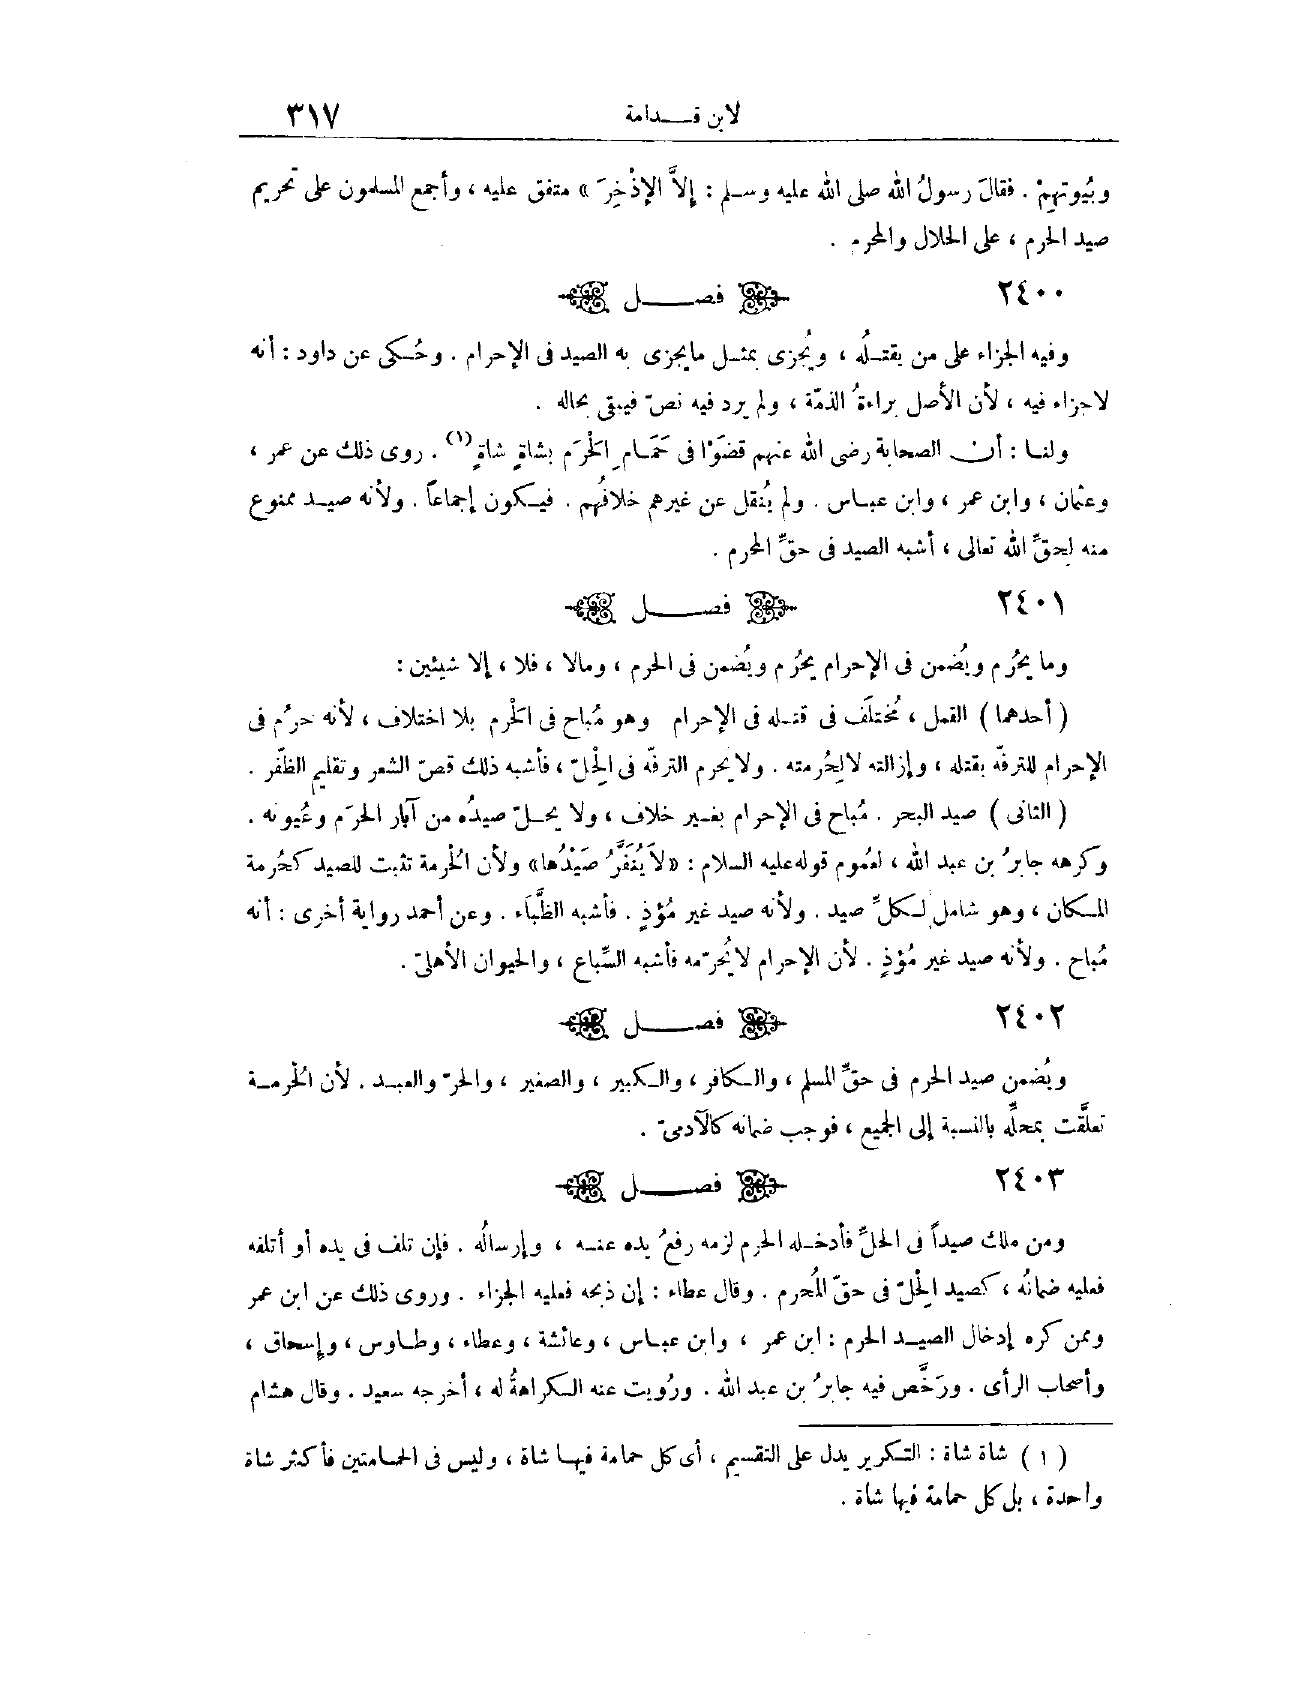 لابن قـدامة ٣١٧
وبُيوتهِمْ . فقالَ رسولُ الله صلى الله عليه وسلم : إلاَّ الإذْخِرَ » متفق عليه ، وأجمع المسلمون على تحريم
صيد الحرم ، على الحلال والمحرم .
٢٤٠٠ فصــل
وفيه الجزاء على من يقتـلُه ، ويُجزى بمثـل مايجزى به الصيد فى الإحرام . وحُـكى عن داود : أنه
لاجزاء فيه ، لأن الأصل براءةُ الذمّة ، ولم يرد فيه نصّ فيبقى بحاله .
ولنا : أن الصحابة رضى الله عنهم قضَوْا فى حَمَام الحَرَم بشاةٍ شاةٍ (١) . روى ذلك عن عمر ،
وعثمان ، وابن عمر ، وابن عباس . ولم يُنقل عن غيرهم خلافُهم . فيـكون إجماعاً . ولأنه صيـد ممنوع
منه لحقِّ الله تعالى ، أشبه الصيد فى حقِّ المحرم .
٢٤٠١ فصــل
وما يحرُم ويُضمن فى الإحرام يحرُم ويُضمن فى الحرم ، ومالا ، فلا ، إلا شيئين :
( أحدهما ) القمل ، مُختلَف فى قتـله فى الإحرام وهو مُباح فى الحْرم بلا اختلاف ، لأنه حرُم فى
الإحرام للترفّه بقتله ، وإزالته لالِحُرمته . ولايحرم الترفّه فى الِحلّ ، فأشبه ذلك قصّ الشعر وتقليم الظفّر .
( الثانى ) صيد البحر . مُباح فى الإحرام بغـير خلاف ، ولا يحـلّ صيدُه من آبار الحرَم وعُيونه .
وكرهه جابرُ بن عبد الله ، لعُموم قوله عليه السلام : «لاَ يُنَفَّرُ صَيْدُها» ولأن الُحرمة تثبت للصيد كحُرمة
المـكان ، وهو شامل لـكلِّ صيد . ولأنه صيد غير مُؤذٍ . فأشبه الظِّبَاء . وعن أحمد رواية أخرى : أنه
مُباح . ولأنه صيد غير مُؤذٍ . لأن الإحرام لايُحرّمه فأشبه السِّباع ، والحيوان الأهلىّ .
٢٤٠٢ فصــل
ويُضمن صيد الحرم فى حقِّ المسلم ، والـكافر ، والـكبير ، والصغير ، والحرّ والعبـد . لأن الُحرمـة
تعلَّقت بمحلِّه بالنسبة إلى الجميع ، فوجب ضمانه كالآدمىّ .
٢٤٠٣ فصــل
ومن ملك صيداً فى الحلِّ فأدخـله الحرم لزمه رفعُ يده عنـه ، وإرسالُه . فإن تلف فى يده أو أتلفه
فعليه ضمانُه ، كصيد الِحلّ فى حقّ المُحرم . وقال عطاء : إن ذبحه فعليه الجزاء . وروى ذلك عن ابن عمر
وممن كره إدخال الصيـد الحرم : ابن عمر ، وابن عبـاس ، وعائشة ، وعطاء ، وطـاوس ، وإسحاق ،
وأصحاب الرأى . ورَخَّص فيه جابرُ بن عبد الله . ورُويت عنه الـكراهةُ له ، أخرجه سعيد . وقال هشام
( ١ ) شاة شاة : التـكرير يدل على التقسيم ، أى كل حمامة فيهـا شاة ، وليس فى الحمامتين فأكثر شاة
واحدة ، بل كل حمامة فيها شاة .